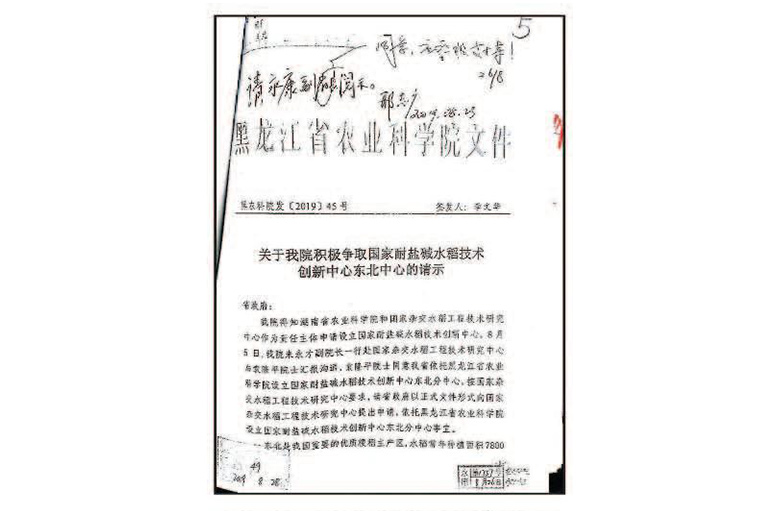 5
同意,
26/8
请永康副省长阅示。
2019.08.23
黑龙江省农业科学院文件
黑农科院发〔2019〕45号 签发人：李文华
关于我院积极争取国家耐盐碱水稻技术
创新中心东北中心的请示
省政府：
我院得知湖南省农业科学院和国家杂交水稻工程技术研究
中心作为责任主体申请设立国家耐盐碱水稻技术创新中心。8月
5日，我院来永才副院长一行赴国家杂交水稻工程技术研究中心
与袁隆平院士汇报沟通，袁隆平院士同意我省依托黑龙江省农业
科学院设立国家耐盐碱水稻技术创新中心东北分中心。按国家杂
交水稻工程技术研究中心要求，请省政府以正式文件形式向国家
杂交水稻工程技术研究中心提出申请，依托黑龙江省农业科学院
设立国家耐盐碱水稻技术创新中心东北分中心事宜。
东北是我国重要的优质粳稻主产区，水稻常年种植面积7800
49
2019 8 28
8月26日